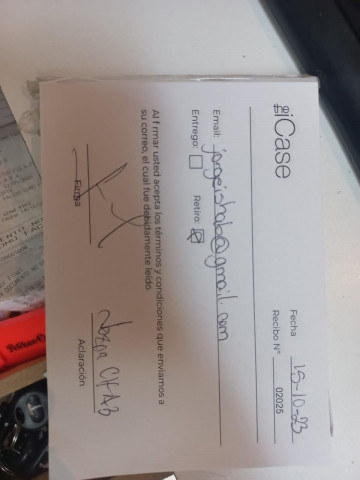 iCase
Fecha 15-10-23
Recibo N° 02025
Email: jorgeishab@gmail.com
Entrego: Retiro:
Al firmar usted acepta los términos y condiciones que enviamos a
su correo, el cual fue debidamente leído.
Firma
Aclaración